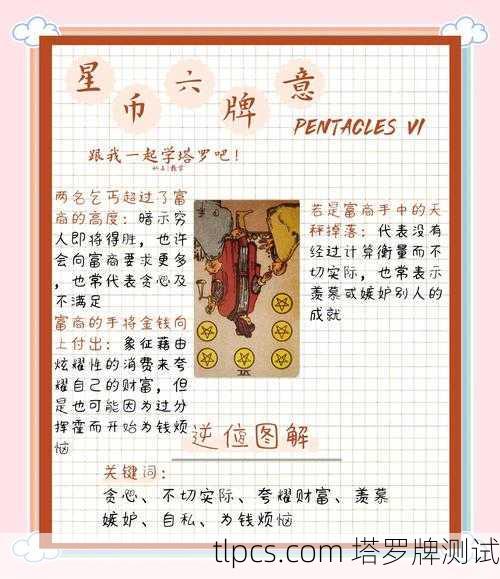 星币六牌意
PENTACLES VI
跟我一起学塔罗吧！
两名乞丐超过了富
商的高度：暗示穷
人即将得胜，也许
会向富商要求更多
，也常代表贪心及
不满足
富商的手将金钱向
上付出：象征藉由
炫耀性的消费来夸
耀自己的财富，但
是也可能因为过分
挥霍而开始为钱烦
恼
若是富商手中的天
秤掉落：代表没有
经过计算衡量而不
切实际，也常表示
羡慕或嫉妒别人的
成就
逆位图解
关键词：
贪心、不切实际、夸耀财富、羡慕
嫉妒、自私、为钱烦恼
tlpcs.com 塔罗牌测试